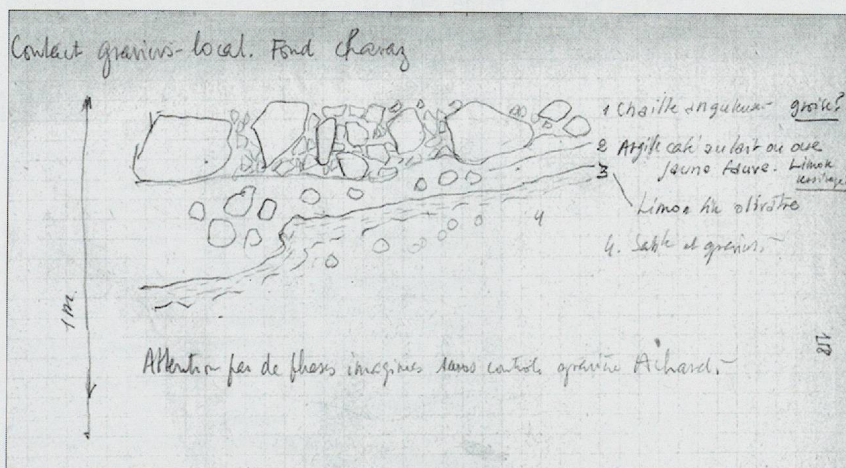 Contact graviers-local. Fond charaz
1 Chaille anguleuse groise?
2 Argile café au lait ou ocre
jaune fauve. Limon
3
Limon fin olivâtre
4
4. Sable et graviers.-
1m
118
Attention pas de phases imaginées sans contrôle gravière Achard.-